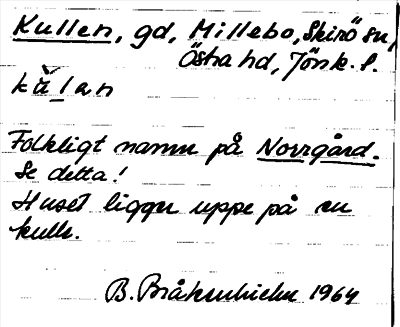 Kullen, gd, Millebo, Skirö sn,
Östra hd, Jönk. l.
ku̇lan
Folkligt namn på Norrgård.
Se detta!
Huset ligger uppe på en
kulle.
B. Bråkenhielm 1964